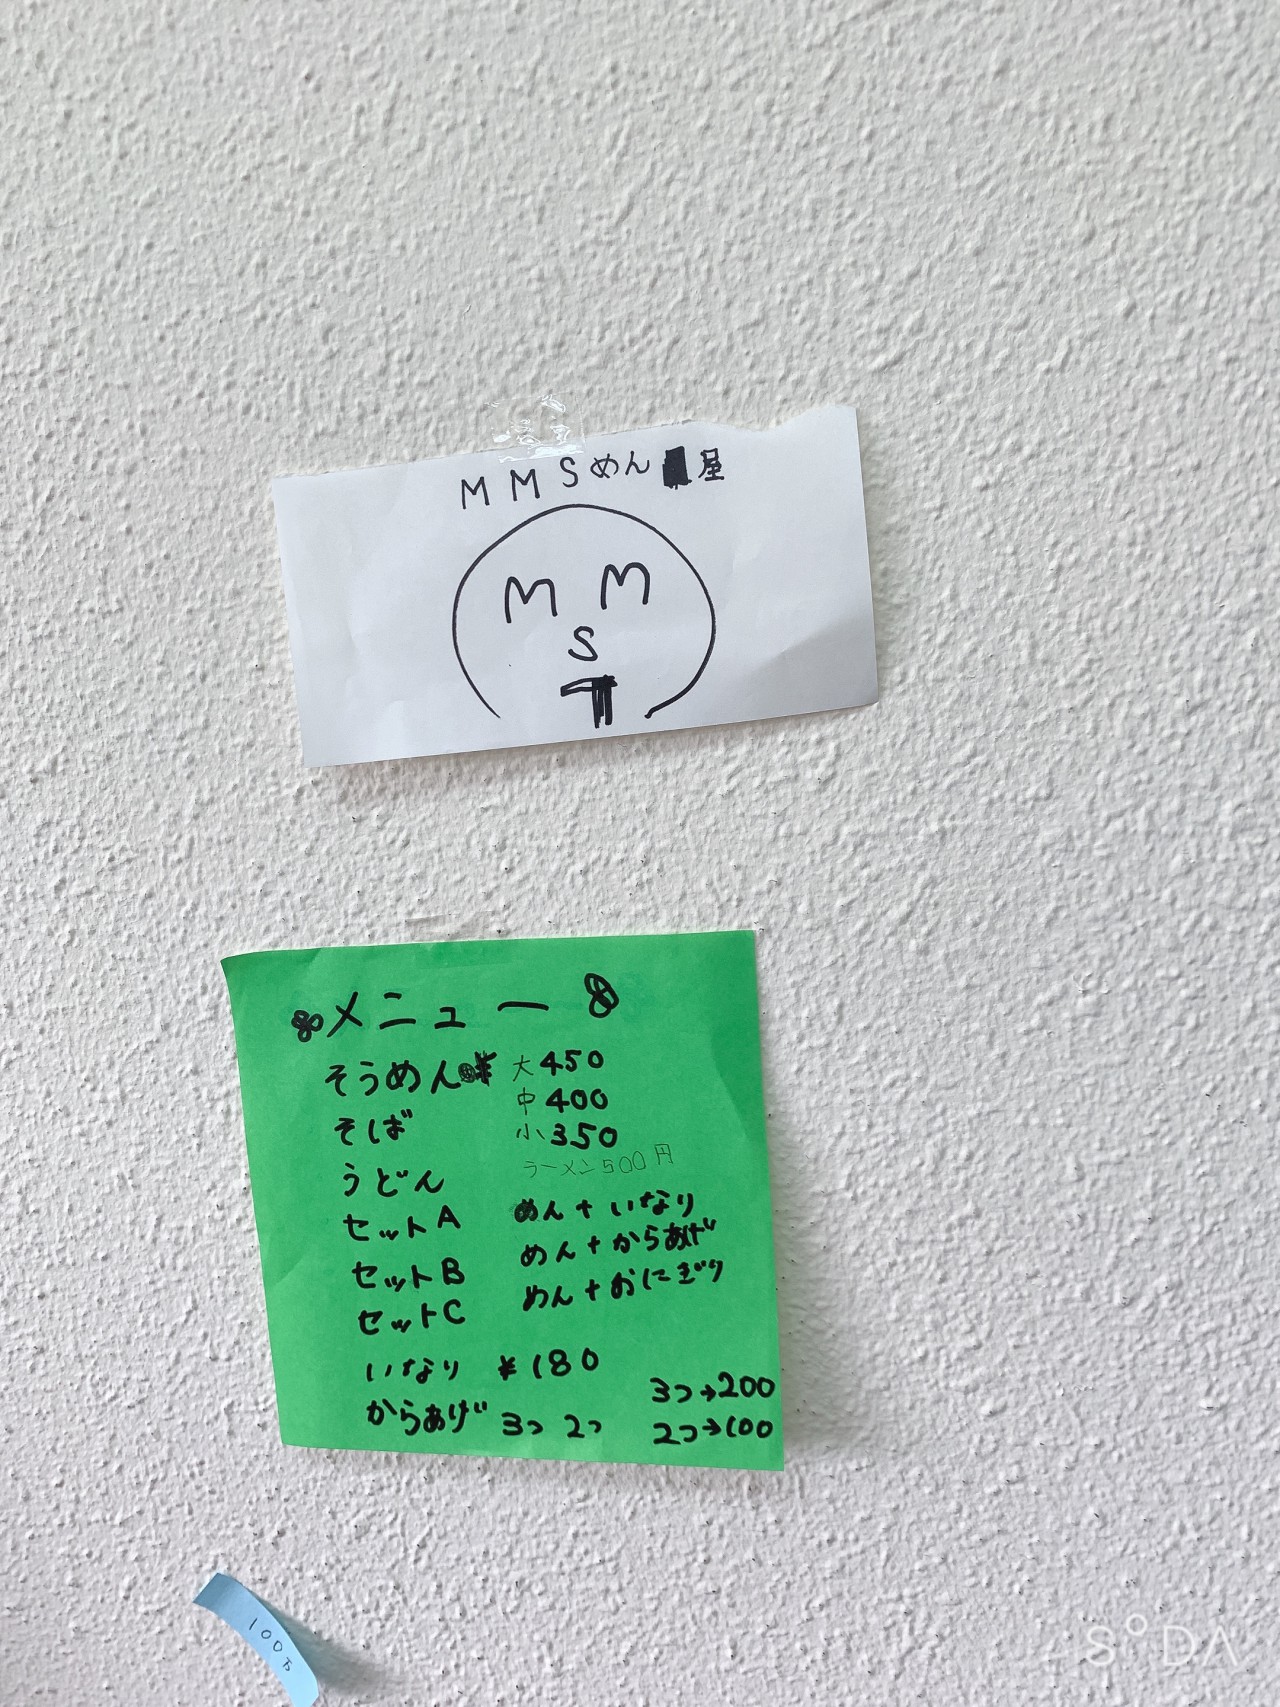 MMSめん屋
M M
S
メニュー
そうめん ¥ 大450
そば 中400
小350
ラーメン500円
うどん
セットA めん+いなり
セットB めん+からあげ
セットC めん+おにぎり
いなり ¥180
からあげ 3つ 2つ 3つ→200
2つ→100
100万
SODA